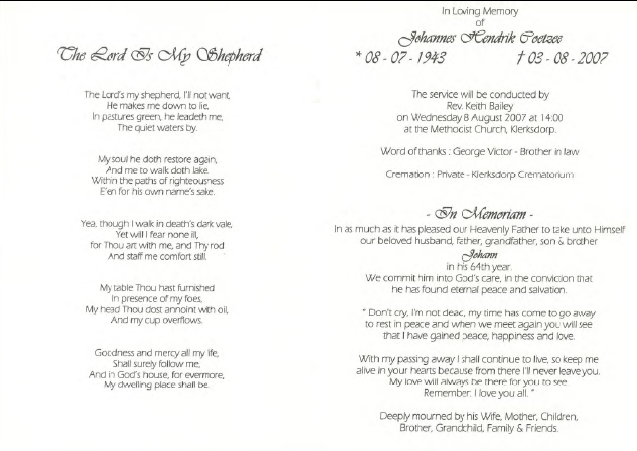 The Lord Is My Shepherd
The Lord's my shepherd, I'll not want,
He makes me down to lie,
In pastures green, he leadeth me,
The quiet waters by.
My soul he doth restore again,
And me to walk doth lake.
Within the paths of righteousness
E'en for his own name's sake.
Yea, though I walk in death's dark vale,
Yet will I fear none ill,
for Thou art with me, and Thy rod
And staff me comfort still.
My table Thou hast furnished
In presence of my foes,
My head Thou dost annoint with oil,
And my cup overflows.
Goodness and mercy all my life,
Shall surely follow me,
And in God's house, for evermore,
My dwelling place shall be.
In Loving Memory
of
Johannes Hendrik Coetzee
* 08 - 07 - 1943 † 03 - 08 - 2007
The service will be conducted by
Rev. Keith Bailey
on Wednesday 8 August 2007 at 14:00
at the Methodist Church, Klerksdorp.
Word of thanks : George Victor - Brother in law
Cremation : Private - Klerksdorp Crematorium
- In Memoriam -
In as much as it has pleased our Heavenly Father to take unto Himself
our beloved husband, father, grandfather, son & brother
Johann
in his 64th year.
We commit him into God's care, in the conviction that
he has found eternal peace and salvation.
" Don't cry, I'm not dead, my time has come to go away
to rest in peace and when we meet again you will see
that I have gained peace, happiness and love.
With my passing away I shall continue to live, so keep me
alive in your hearts because from there I'll never leave you.
My love will always be there for you to see.
Remember, I love you all. "
Deeply mourned by his Wife, Mother, Children,
Brother, Grandchild, Family & Friends.